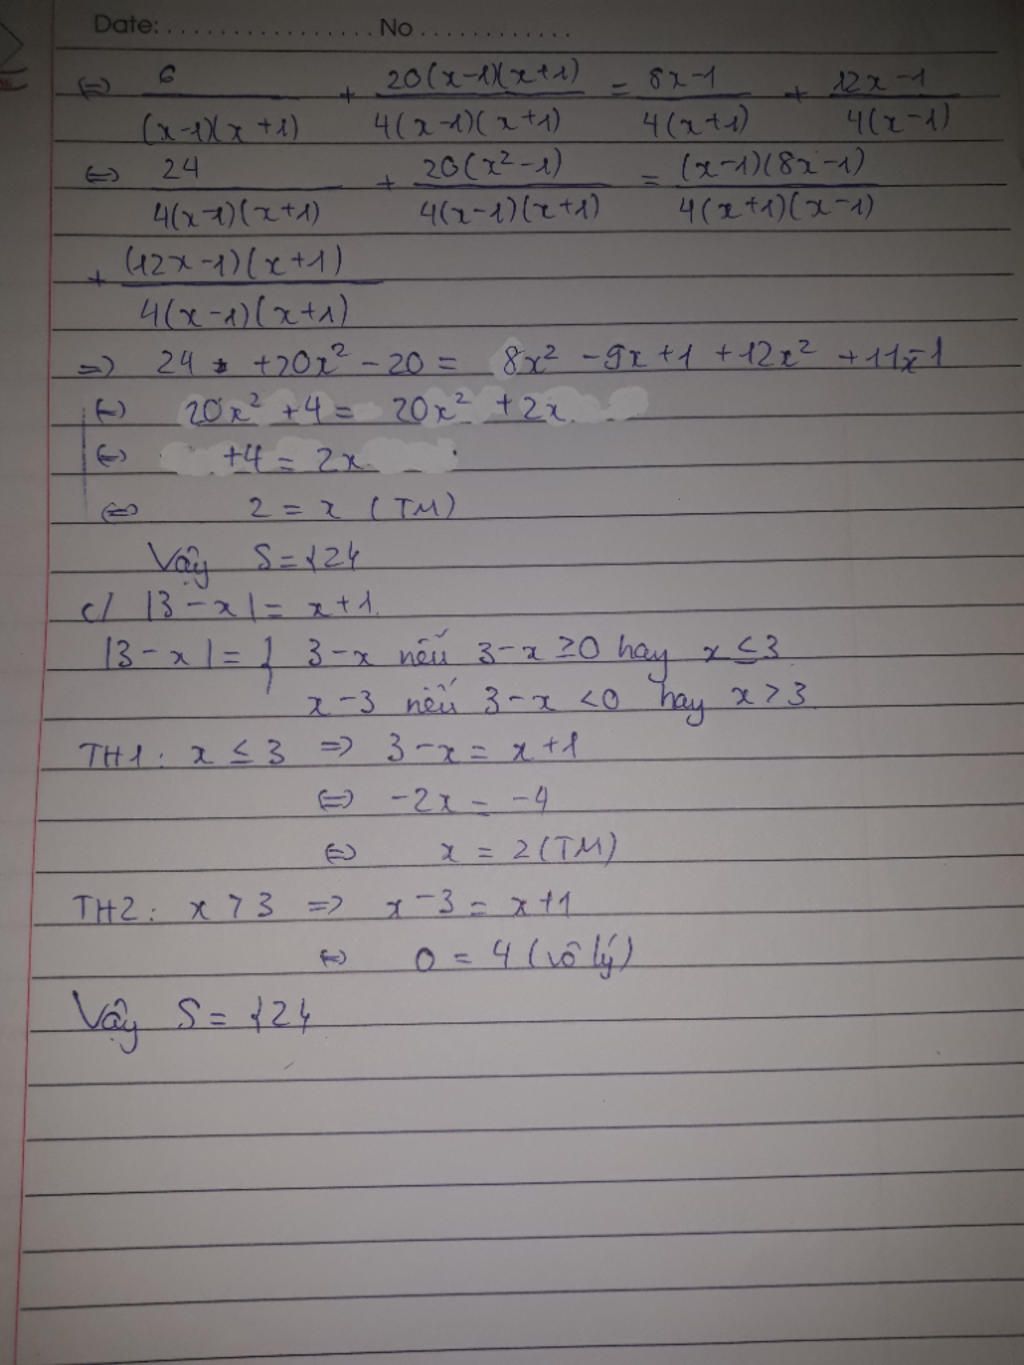 Date: ................ No ............
⇔ 6/((x-1)(x+1)) + 20(x-1)(x+1)/(4(x-1)(x+1)) = (8x-1)/(4(x+1)) + (12x-1)/(4(x-1))
⇔ 24/(4(x-1)(x+1)) + 20(x²-1)/(4(x-1)(x+1)) = (x-1)(8x-1)/(4(x+1)(x-1))
+ (12x-1)(x+1)/(4(x-1)(x+1))
=> 24 +20x² - 20 = 8x² - 9x + 1 + 12x² + 11x - 1
⇔ 20x² + 4 = 20x² + 2x
⇔ +4 = 2x
⇔ 2 = x (TM)
Vậy S = {2}
c/ |3 - x| = x + 1
|3 - x| = { 3 - x nếu 3 - x ≥ 0 hay x ≤ 3
x - 3 nếu 3 - x < 0 hay x > 3
TH1: x ≤ 3 => 3 - x = x + 1
⇔ -2x = -4
⇔ x = 2 (TM)
TH2: x > 3 => x - 3 = x + 1
⇔ 0 = 4 (vô lý)
Vậy S = {2}